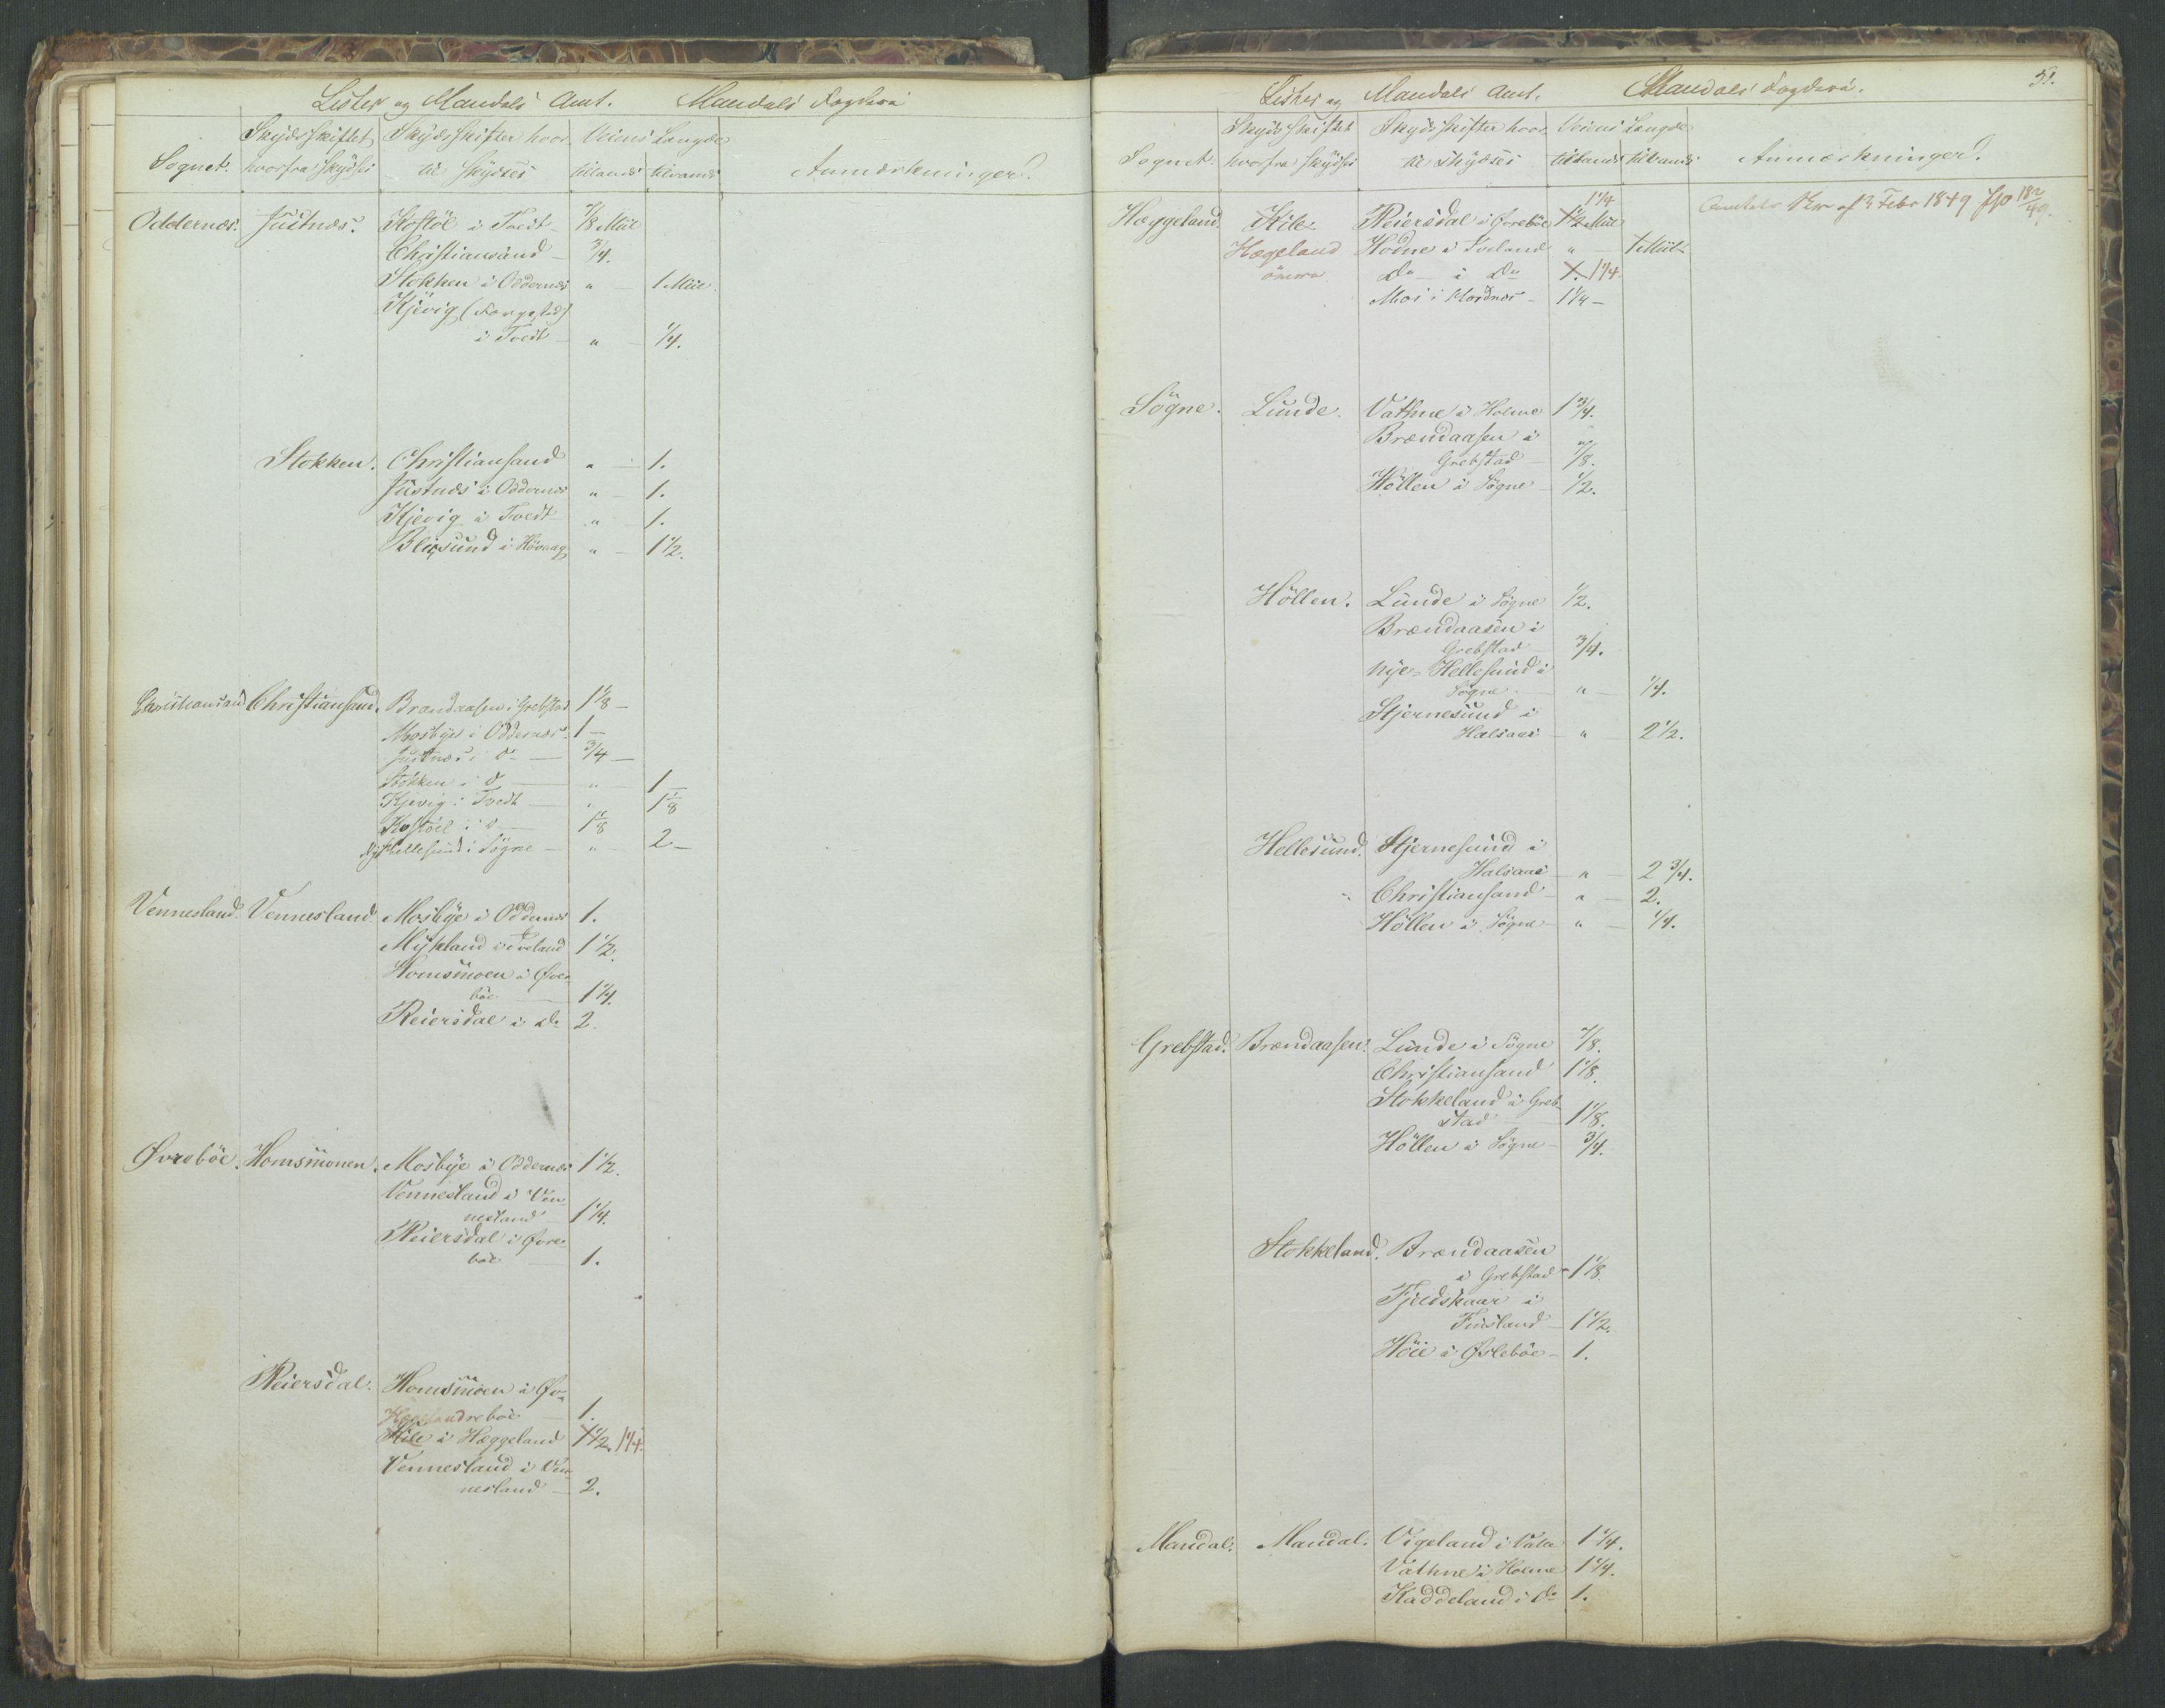 Lister og Mandals Amt. Mandals Fogderi
Skydsskiftet Skydsskifter hvor Veiens Længde
Sognet. hvorfra Skydses til Skydses tillands tilvands Anmærkninger.
Oddernæs. Justnæs. Kostöl i Tveit 7/8 Miil
Christiansand 3/4.
Stokken i Oddernæs " 1 Miil.
Kjevig (Færgested)
i Tveit " 1/4.
Stokken. Christiansand " 1.
Justnæs i Oddernæs " 1.
Kjevig i Tvedt " 1.
Blixsund i Høvaag " 1 1/2.
Christiansand Christiansand. Brændaasen i Grebstad 1 1/8
Mosbye i Oddernæs 1
Justnæs i do 3/4
Stokken i do " 1
Kjevig i Tvedt " 1 1/8
Kostöel i do 1 1/8
Nye Hellesund i Sögne " 2
Vennesland. Vennesland. Mosbye i Oddernæs 1.
Mykland i Iveland 1 1/2.
Homsmoen i Øvre-
böe 1 1/4.
Reiersdal i do 2.
Øvrebôe. Homsmoen. Mosbye i Oddernæs 1 1/2.
Vennesland i Ven-
nesland 1 1/4.
Reiersdal i Øvre-
böe 1.
Reiersdal. Homsmoen i Øv-
Hægeland reböe 1.
Kile i Hæggeland 1 1/2. 1 1/4
Vennesland i Ven-
nesland 2.
Lister og Mandals Amt. Mandals Fogderi. 51.
Skydsskiftet Skydsskifter hvor Veiens Længde
Sognet hvorfra Skydses til Skydses tillands tilvands Anmærkninger.
1 1/4
Hæggeland. Kile. Reiersdal i Øvreböe 1 1/2 Miil Amtets Skr af 3 Febr 1849
Hægeland Hodne i Iveland " 1 Miil
övre do i do 1. 1 1/4
Moi i Hordnes 1 1/4
Sögne. Lunde. Vathne i Holme 1 3/4.
Brændaasen i
Grebstad 7/8.
Höllen i Sögne 1/2.
Höllen. Lunde i Sögne 1/2.
Brændaasen i
Grebstad 3/4.
Nye-Hellesund i
Sögne " 1/4.
Stjernesund i
Halsaae " 2 1/2.
Hellesund. Stjernesund i
Halsaae " 2 3/4.
Christiansand " 2.
Höllen i Sögne " 1/4.
Grebstad. Brændaasen. Lunde i Sögne 7/8.
Christiansand 1 1/8.
Stokkeland i Greb-
stad 1 1/8.
Höllen i Sögne 3/4.
Stokkeland. Brændaasen
i Grebstad 1 1/8.
Fjeldskaar i
Finsland 1 1/2.
Höie i Øsleböe 1.
Mandal. Mandal. Vigeland i Valle 1 1/4.
Vathne i Holme 1 1/4.
Kaddeland i do 1.